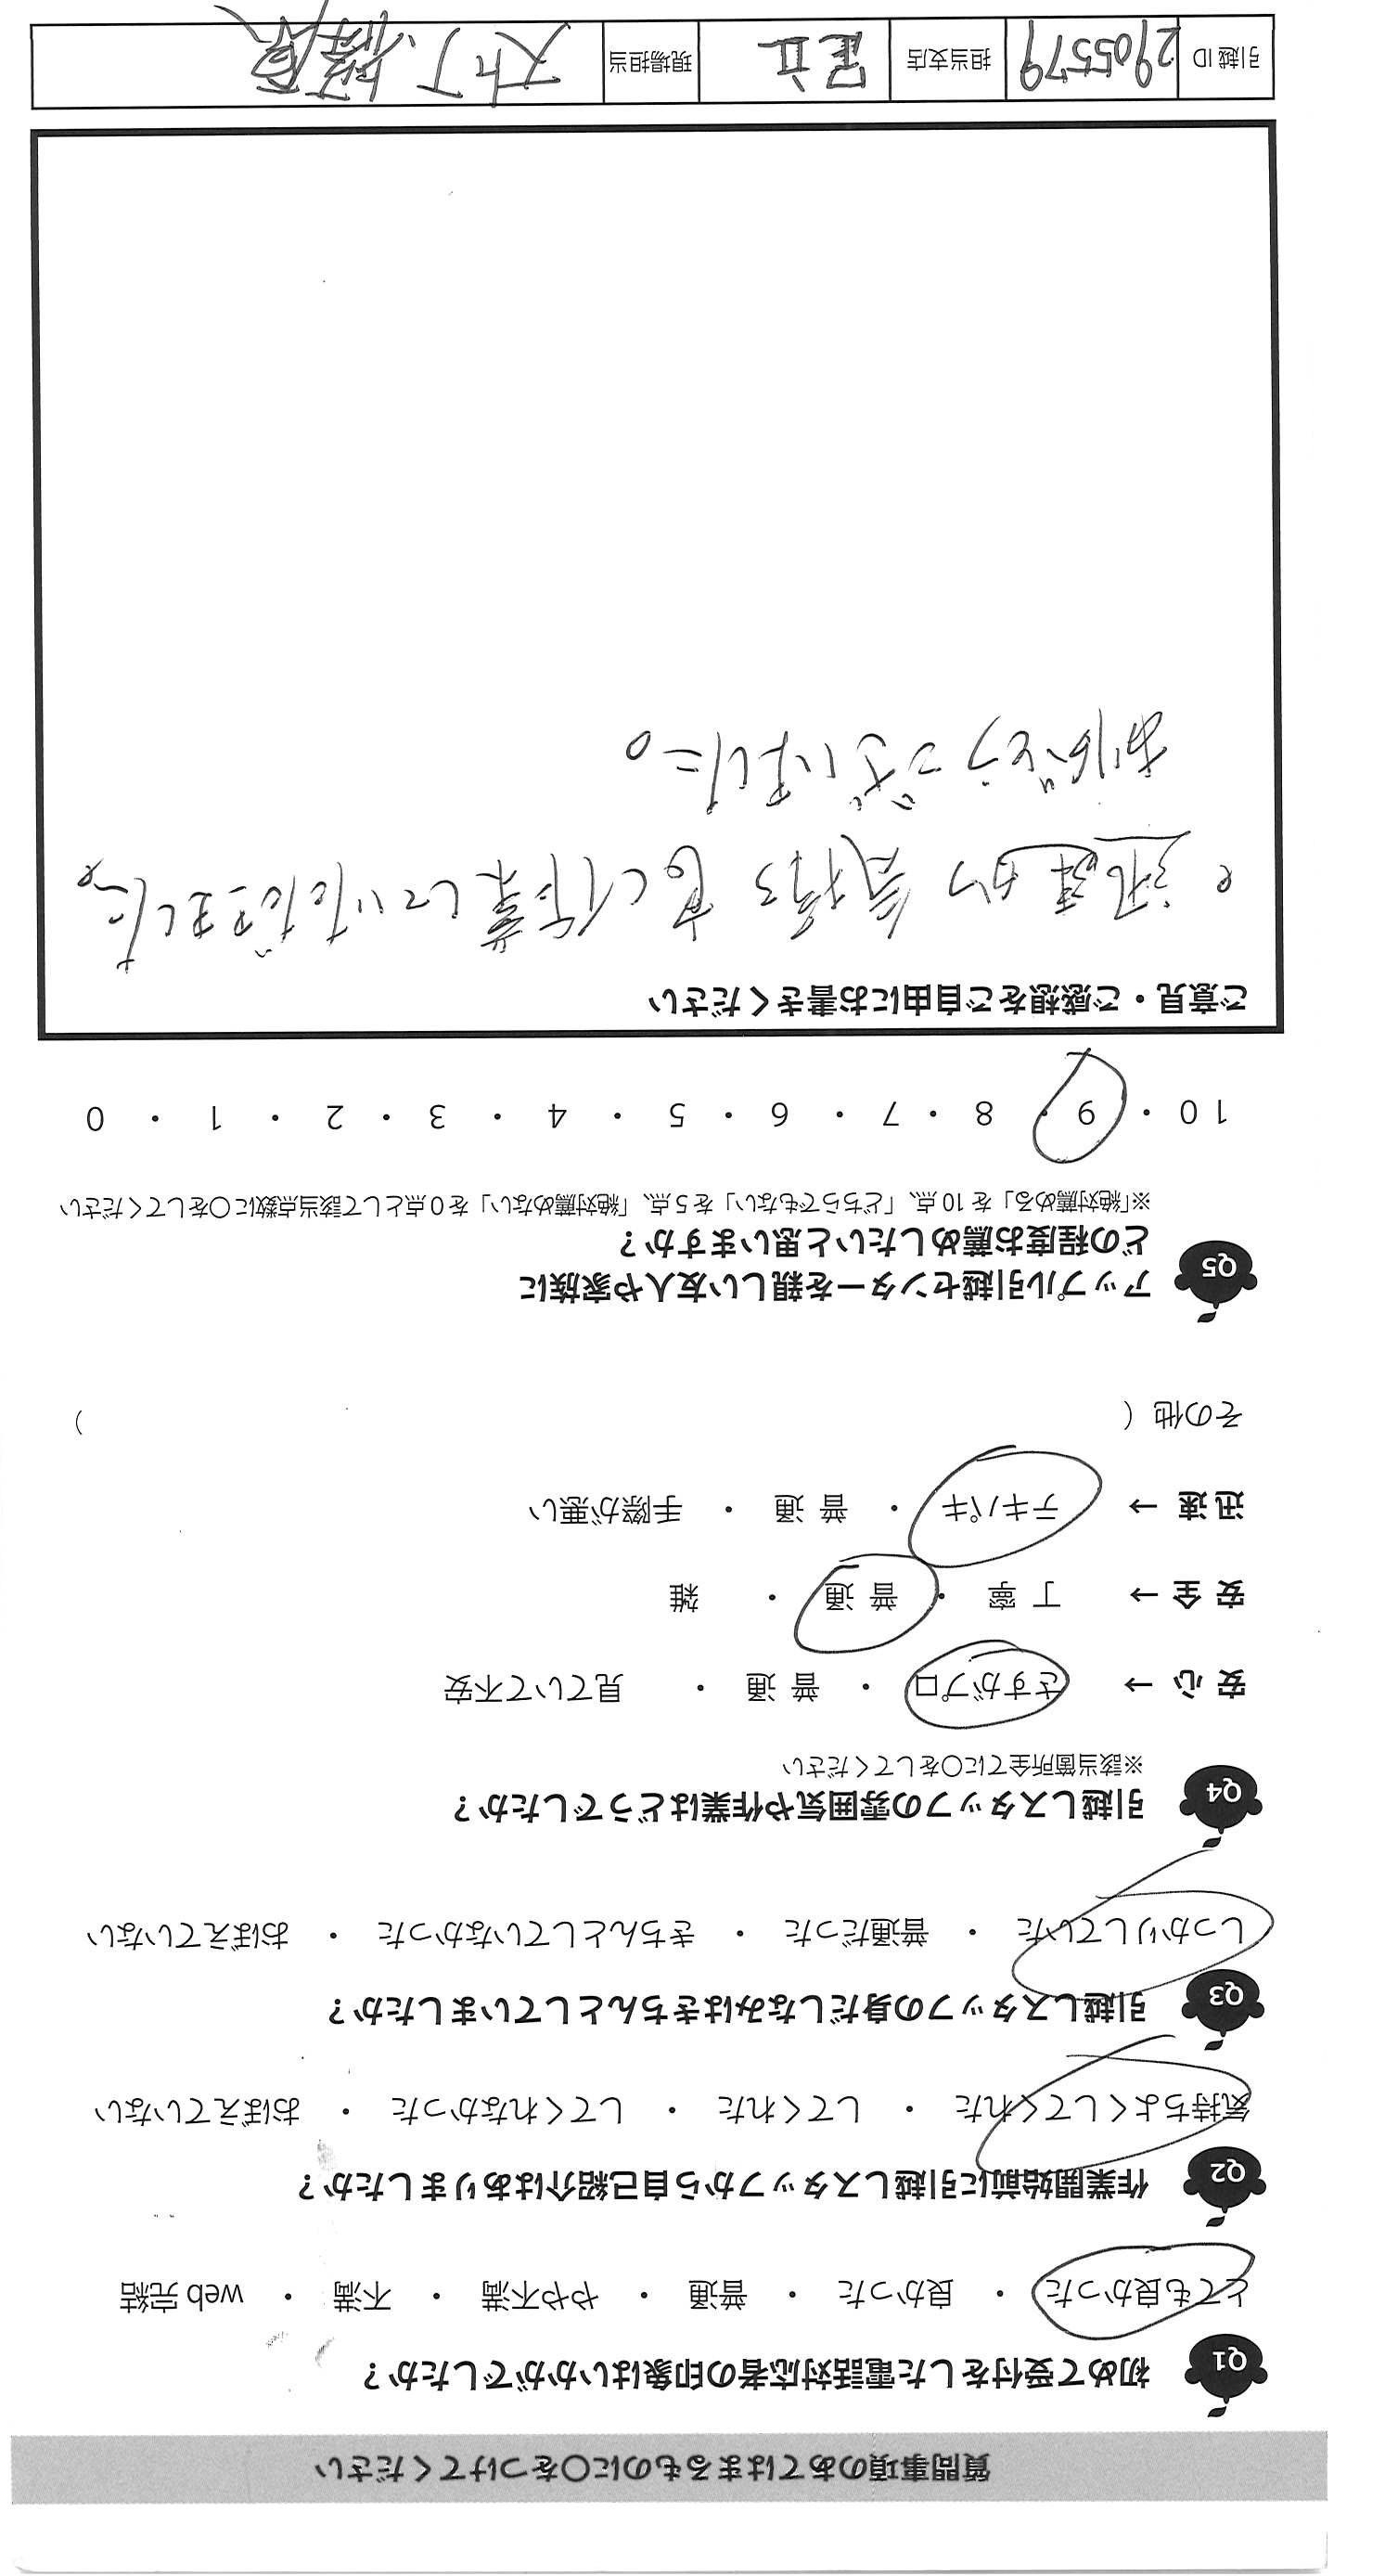 質問事項のあてはまるものに〇をつけてください
Q1 初めて受付をした電話対応者の印象はいかがでしたか？
とても良かった ・ 良かった ・ 普通 ・ やや不満 ・ 不満 ・ web 完結
Q2 作業開始前に引越しスタッフから自己紹介はありましたか？
気持ちよくしてくれた ・ してくれた ・ してくれなかった ・ おぼえていない
Q3 引越しスタッフの身だしなみはきちんとしていましたか？
しっかりしていた ・ 普通だった ・ きちんとしていなかった ・ おぼえていない
Q4 引越しスタッフの雰囲気や作業はどうでしたか？
※該当箇所全てに〇をしてください
安心 → さすがプロ ・ 普通 ・ 見ていて不安
安全 → 丁寧 ・ 普通 ・ 雑
迅速 → テキパキ ・ 普通 ・ 手際が悪い
その他（ ）
Q5 アップル引越センターを親しい友人や家族に
どの程度お薦めしたいと思いますか？
※「絶対薦める」を 10 点、「どちらでもない」を 5 点、「絶対薦めない」を 0 点として該当点数に〇をしてください
10 ・ 9 ・ 8 ・ 7 ・ 6 ・ 5 ・ 4 ・ 3 ・ 2 ・ 1 ・ 0
ご意見・ご感想をご自由にお書きください
・迅速かつ気持ちよく作業していただきました。
ありがとうございました。
引越 ID 2905579 担当支店 足立 現場担当